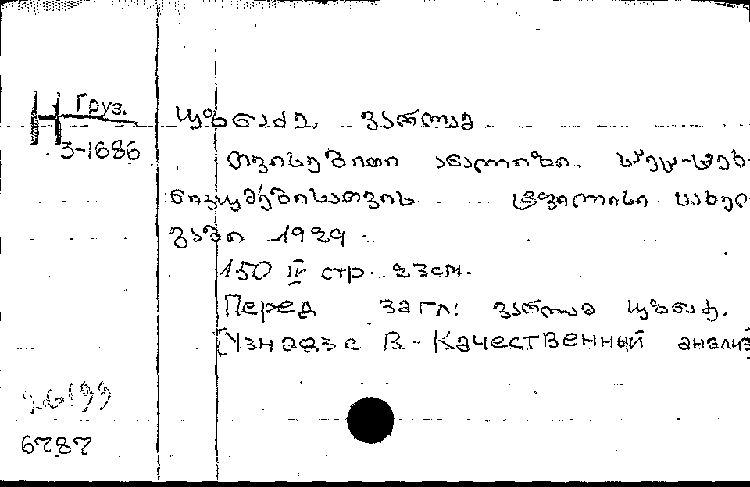 Груз.
უზნაძე, ვარლამ
3-1686
თვისებითი ანალიზი.
ნიკუმებისათვის ტფილისი სახელ
გამი 1929.
150 IV стр. 23см.
Перед загл: ვარლამ უზნაძ.
[Узнадзе В. - Качественный анализ
26199
6787